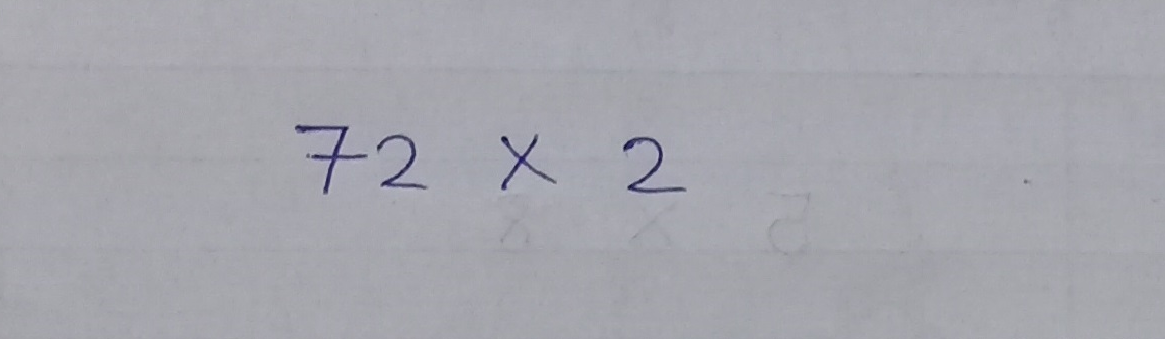 72 × 2